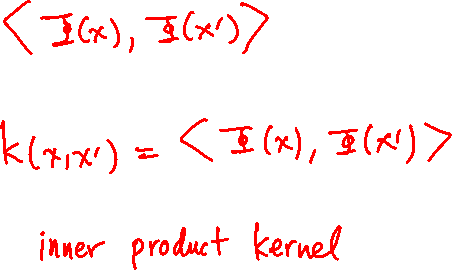 ⟨Φ(x), Φ(x')⟩
k(x,x') = ⟨Φ(x), Φ(x')⟩
inner product kernel